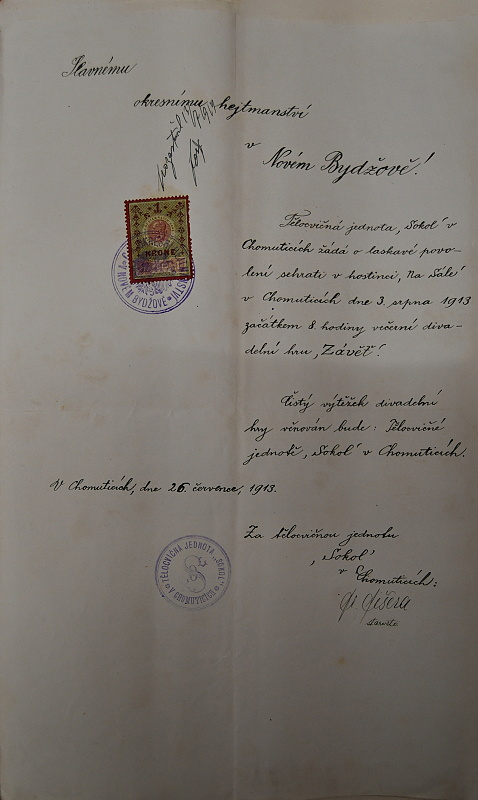 Slavnému
okresnímu hejtmanství
v
Novém Bydžově!
1
KRONE
V NOVÉM BYDŽOVĚ
Tělocvičná jednota „Sokol" v
Chomuticích žádá o laskavé povo-
lení sehrati v hostinci „Na Sále"
v Chomuticích dne 3. srpna 1913
začátkem 8. hodiny večerní diva-
delní hru „Závěť".
Čistý výtěžek divadelní
hry věnován bude: Tělocvičné
jednotě „Sokol" v Chomuticích.
V Chomuticích, dne 26. července, 1913.
Za tělocvičnou jednotu
„Sokol"
v Chomuticích:
TĚLOCVIČNÁ JEDNOTA „SOKOL"
V CHOMUTICÍCH
S
Fišera
starosta